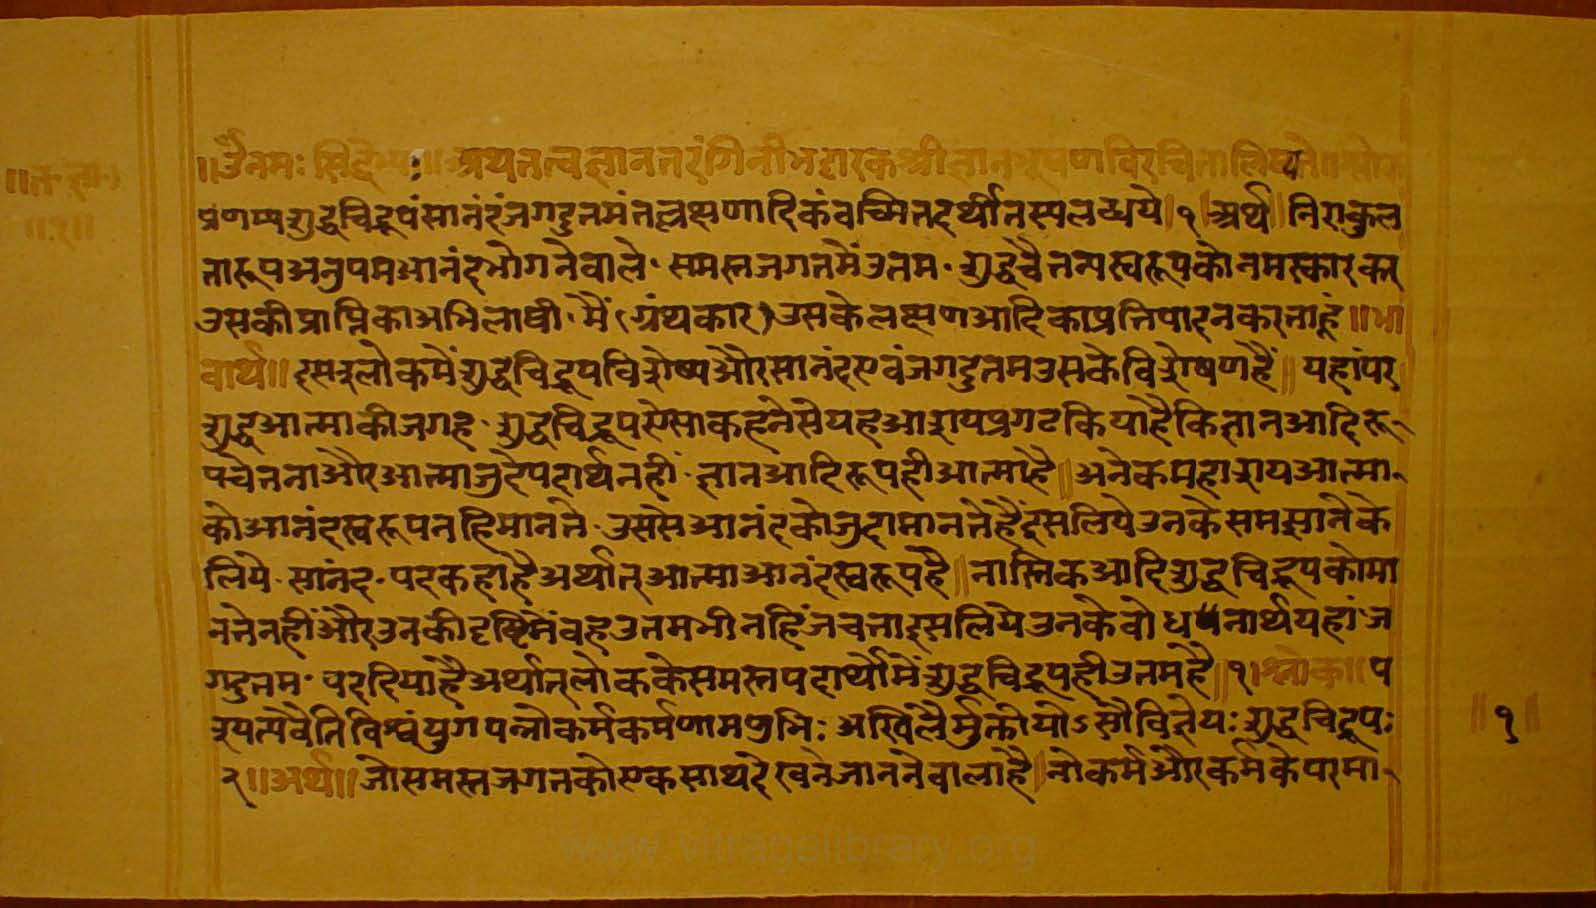 ॥त॰ज्ञा॰॥
॥१॥
॥ॐ नमः सिद्धेभ्यः॥ अथ तत्वज्ञानतरंगिनी भट्टारक श्री ज्ञानभूषण विरचिता लिख्यते॥ श्लोक
प्रणम्य शुद्धचिद्रूपं सानंदं जगदुत्तमं तल्लक्षणादिकं वच्मि तदर्थी तस्य लब्धये।१।अर्थ॥ निराकुल
तारूप अनुपम आनंद भोगनेवाले॰ समस्त जगतमें उत्तम॰ शुद्ध चैतन्य स्वरूपको नमस्कार कर
उसकी प्राप्तिका अभिलाषी॰ मैं (ग्रंथकार) उसके लक्षण आदिका प्रतिपादन करता हूं॥भा
वार्थ॥ इस श्लोकमें शुद्धचिद्रूप विशेष्य और सानंद एवं जगदुत्तम उसके विशेषण हैं॥ यहां पर
शुद्ध आत्माकी जगह॰ शुद्धचिद्रूप एसा कहनेसे यह आशय प्रगट किया है कि ज्ञान आदि रू
प चेतना और आत्मा जुदे पदार्थ नहीं॰ ज्ञान आदि रूपही आत्मा है॥ अनेक महाशय आत्मा
को आनंद स्वरूप नहि मानते॰ उससे आनंदको जुदा मानते हैं इसलिये उनके समझानेके
लिये॰ सानंद॰ पद कहा है अर्थात् आत्मा आनंद स्वरूप है॥ नास्तिक आदि शुद्धचिद्रूपको मा
नते नहीं और उनकी दृष्टिमें वह उत्तम भी नहिं जचता इसलिये उनके बोधनार्थ यहां ज
गदुत्तम॰ पद दिया है अर्थात् लोकके समस्त पदार्थोमें शुद्धचिद्रूपही उत्तम है॥१।श्लोक॥ प
श्यत्यवैति विश्वं युगपन्नोकर्मकर्मणामणुभिः अखिलैर्मुक्तो योऽसौ विज्ञेयः शुद्धचिद्रूपः
२॥अर्थ॥ जो समस्त जगतको एक साथ देखने जाननेवाला है॥ नोकर्म और कर्मके परमा
॥१॥
www.vitragelibrary.org